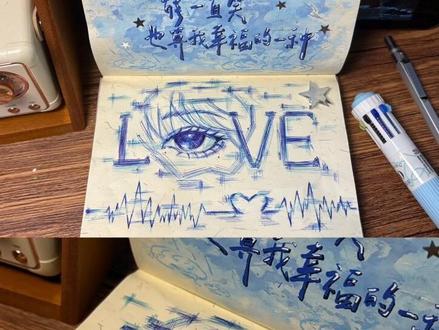 能一直笑
也算我幸福的一种
LOVE
算我幸福的一